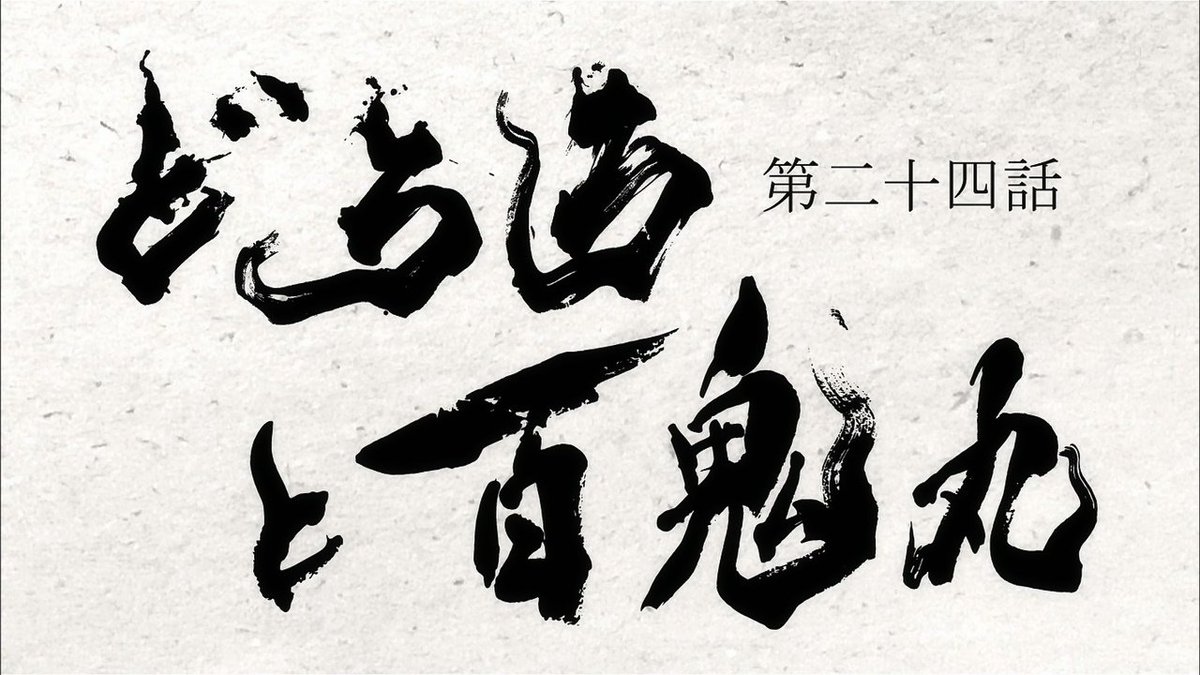 どろろ
第二十四話
と百鬼丸